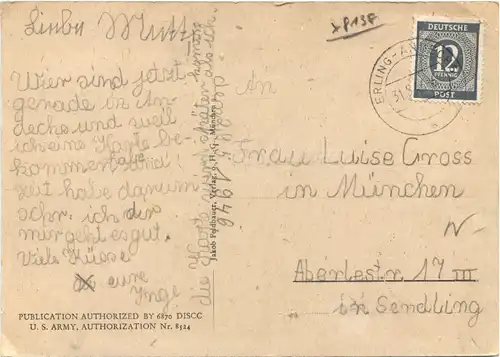 Liebe Mutti
Wier sind jetzt
gerade in An
dechs und weil
ich eine Karte be
kommen habe und
zeit habe darum
schr. ich dir
mir geht es gut.
Viele Küsse
eure
Inge
die Karte später als ich.
1946
Jakob Feldbauer, Verlag München
PUBLICATION AUTHORIZED BY 6870 DISCC
U. S. ARMY, AUTHORIZATION Nr. 8524
P138
DEUTSCHE
12
PFENNIG
POST
ERLING-AN
31.
An
Frau Luise Gross
in München
Aberlestr. 17 III
in Sendling